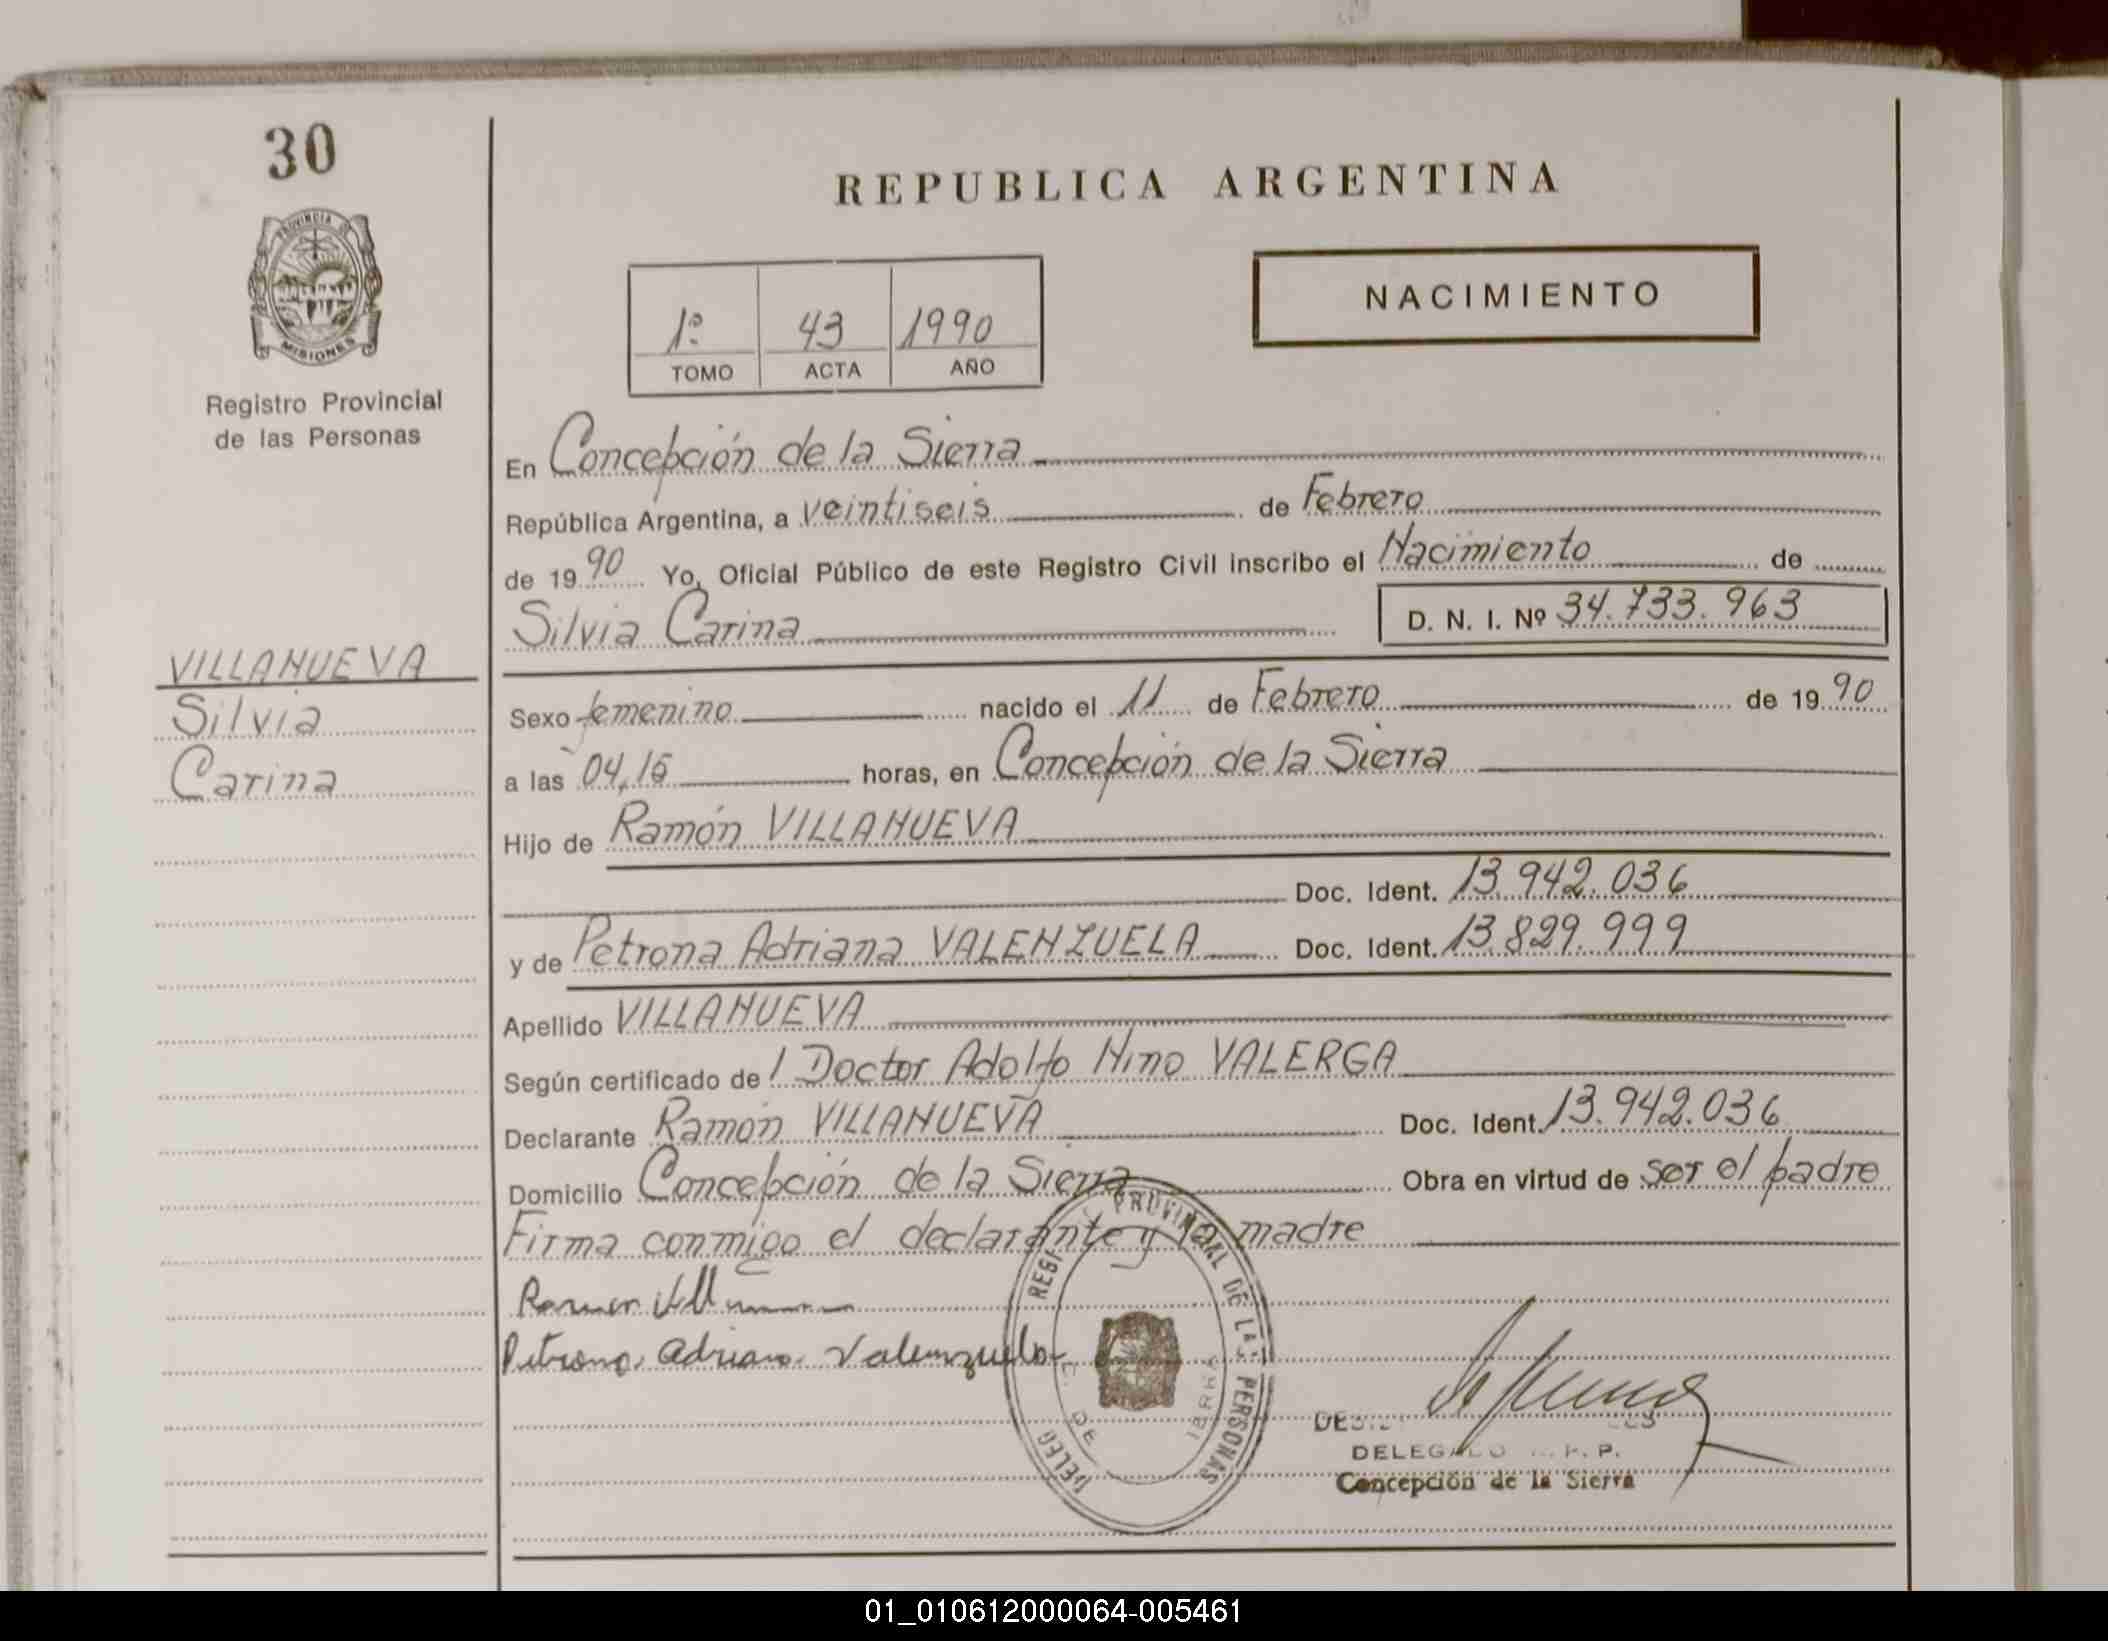 30
PROVINCIA DE
MISIONES
Registro Provincial
de las Personas
VILLANUEVA
Silvia
Carina
REPUBLICA ARGENTINA
1º 43 1990
TOMO ACTA AÑO
NACIMIENTO
En Concepción de la Sierra
República Argentina, a veintiseis de Febrero
de 1990 Yo, Oficial Público de este Registro Civil inscribo el Nacimiento de
Silvia Carina D. N. I. Nº 34.733.963
Sexo femenino nacido el 11 de Febrero de 1990
a las 04,15 horas, en Concepción de la Sierra
Hijo de Ramón VILLANUEVA
Doc. Ident. 13.942.036
y de Petrona Adriana VALENZUELA Doc. Ident. 13.829.999
Apellido VILLANUEVA
Según certificado del Doctor Adolfo Nino VALERGA
Declarante Ramón VILLANUEVA Doc. Ident. 13.942.036
Domicilio Concepción de la Sierra Obra en virtud de ser el padre
Firma conmigo el declarante y la madre
Petrona Adriana Valenzuela
PROVINCIAL DE LAS PERSONAS
DELEG
Concepción de la Sierra
01_010612000064-005461